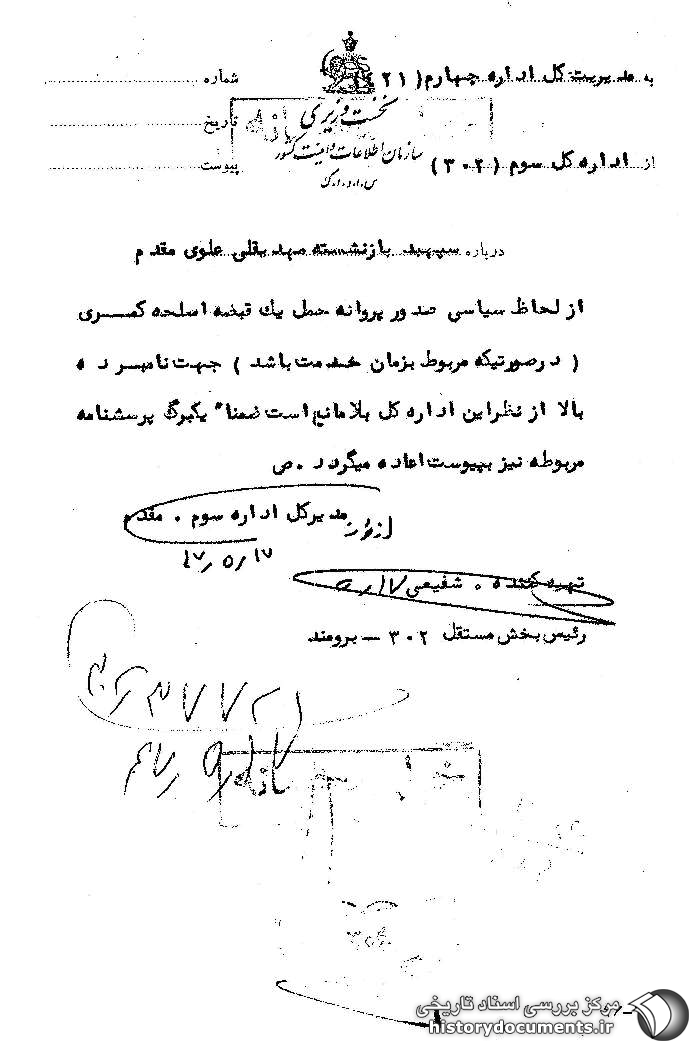 به مدیریت کل اداره چهارم ( ۴۲۱ )
شماره
نخست وزیری
تاریخ
سازمان اطلاعات و امنیت کشور
از اداره کل سوم ( ۳۰۲ )
پیوست
س.ا.و.ا.ک
درباره سپهبد بازنشسته مهدیقلی علوی مقدم
از لحاظ سیاسی صدور پروانه حمل یک قبضه اسلحه کمری
( درصورتیکه مربوط بزمان خدمت باشد ) جهت نامبرده
بالا از نظر این اداره کل بلامانع است ضمنا" یکبرگ پرسشنامه
مربوطه نیز بپیوست اعاده میگردد . ص
مدیرکل اداره سوم . مقدم
از طرف
۴۷/۵/۱۷
تهیه کننده . شفیعی ۵/۱۷
رئیس بخش مستقل ۳۰۲ – برومند
مرکز بررسی اسناد تاریخی
historydocuments.ir